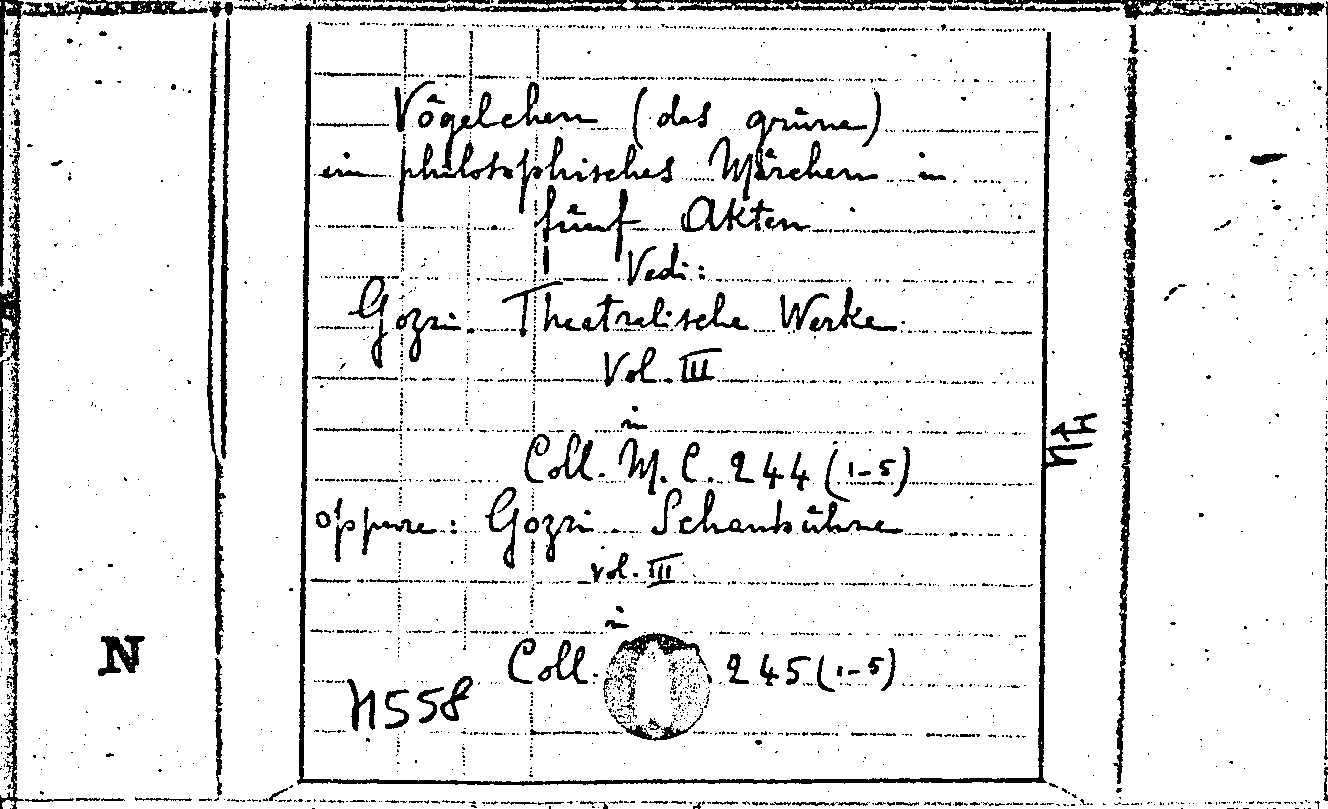 Vögelchen (das grüne)
ein philosophisches Märchen in
fünf Akten
Vedi:
Gozzi. Theatralische Werke.
Vol. III
in
Coll. M. C. 244 (1-5)
oppure: Gozzi. Schaubühne
vol. III
in
Coll. 245 (1-5)
N